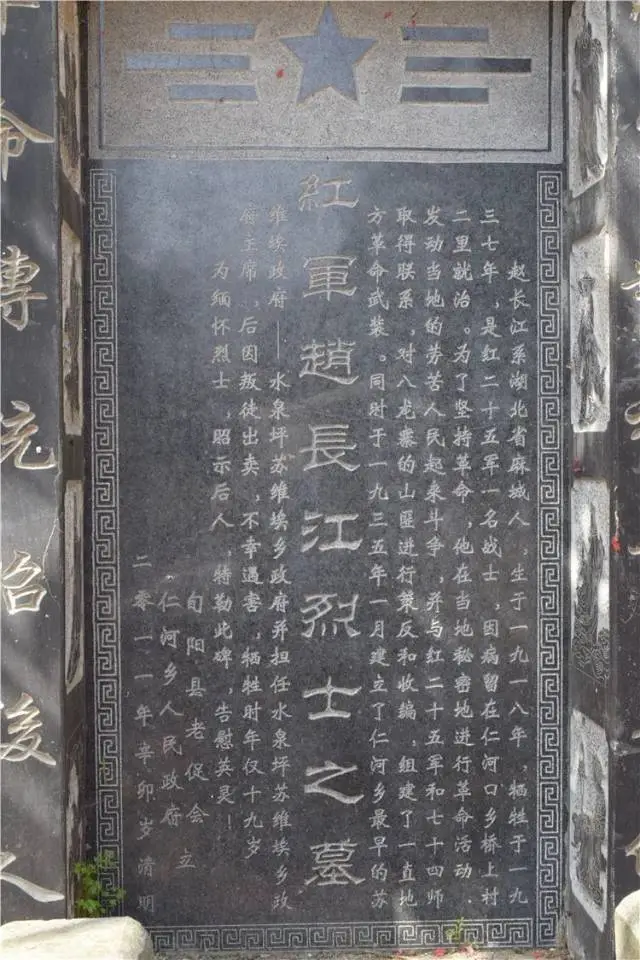 赵长江系湖北省麻城人，生于一九一八年，牺牲于一九
三七年，是红二十五军一名战士，因病留在仁河口乡桥上村
二里就治。为了坚持革命，他在当地秘密地进行革命活动，
发动当地的劳苦人民起来斗争，并与红二十五军和七十四师
取得联系，对八龙寨的山匪进行策反和收编，组建了一直地
方革命武装。同时于一九三五年一月建立了仁河乡最早的苏
紅軍趙長江烈士之墓
维埃政府——水泉坪苏维埃乡政府并担任水泉坪苏维埃乡政
府主席，后因叛徒出卖，不幸遇害，牺牲时年仅十九岁
为缅怀烈士，昭示后人，特勒此碑，告慰英灵！
旬阳县老促会 立
仁河乡人民政府
二零一一年辛卯岁清明
命傳後人